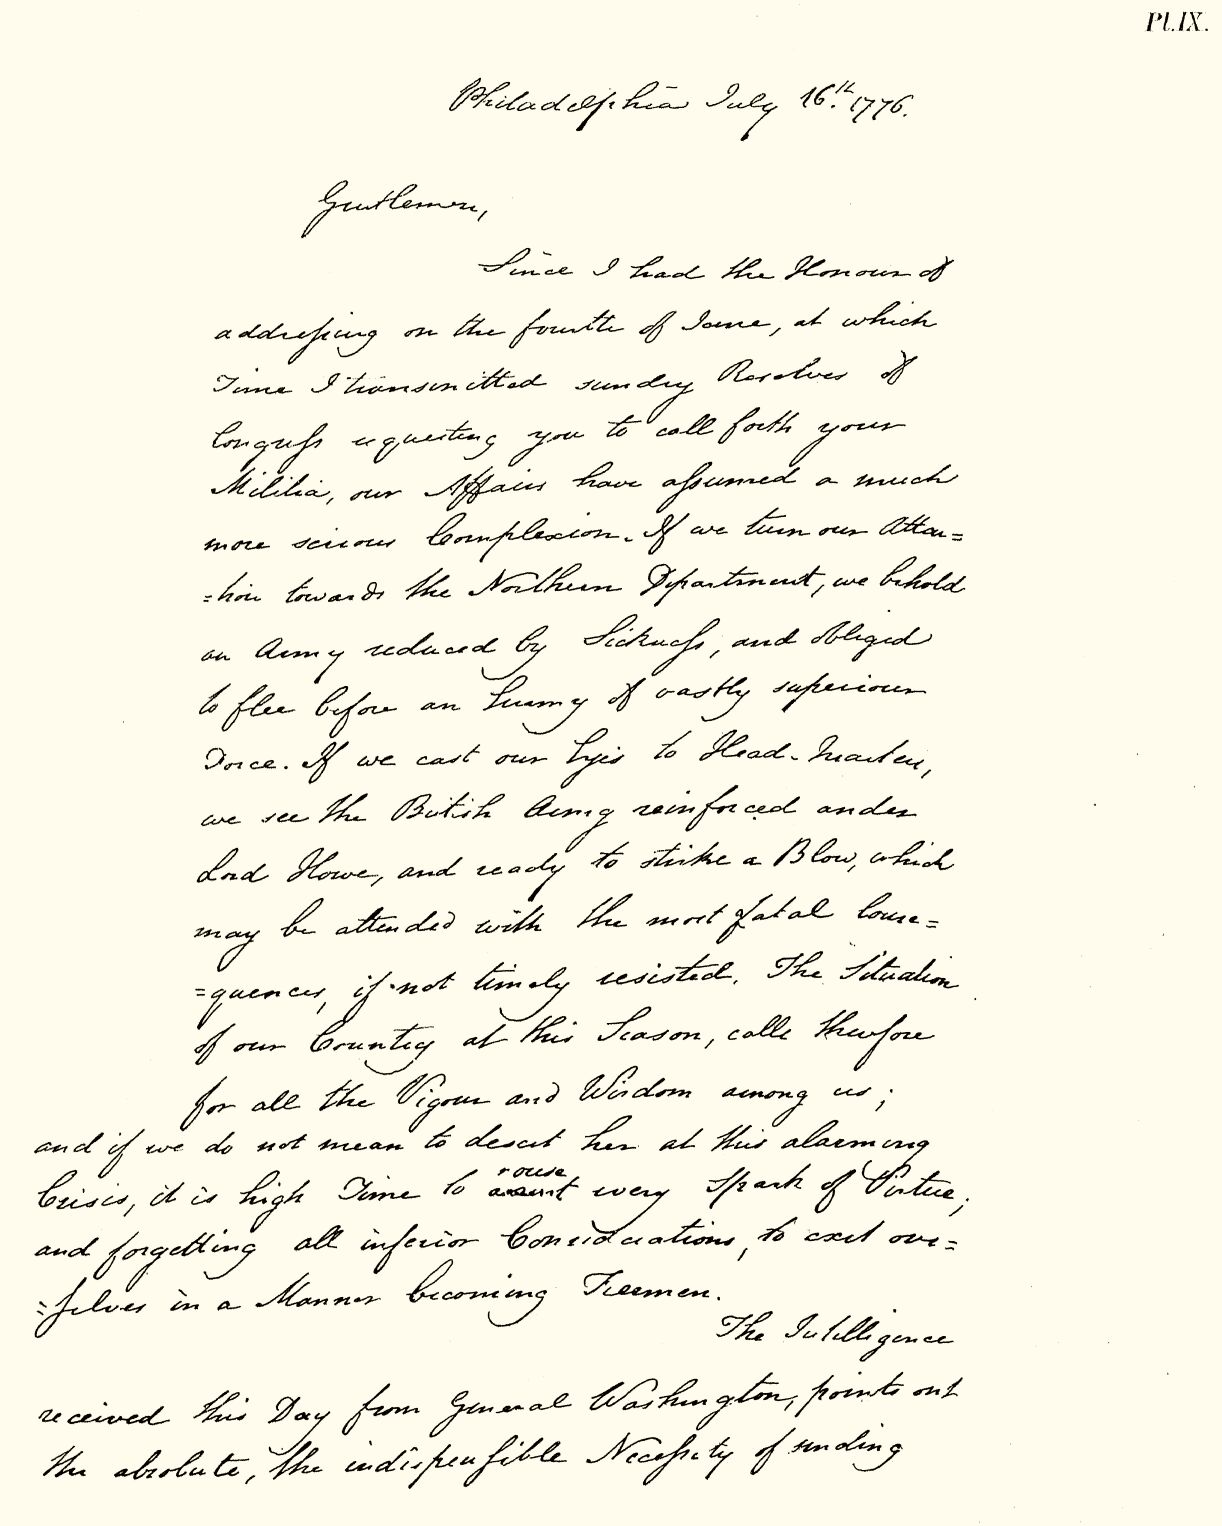 Pl. IX.
Philadelphia July 16th. 1776.
Gentlemen,
Since I had the Honour of
addressing on the fourth of June, at which
Time I transmitted sundry Resolves of
Congress requesting you to call forth your
Militia, our Affairs have assumed a much
more serious Complexion. If we turn our Atten=
=tion towards the Northern Department, we behold
an Army reduced by Sickness, and obliged
to flee before an Enemy of vastly superiour
Force. If we cast our Eyes to Head-Quarters,
we see the British Army reinforced under
Lord Howe, and ready to strike a Blow, which
may be attended with the most fatal Conse=
=quences, if not timely resisted. The Situation
of our Country at this Season, calls therefore
for all the Vigour and Wisdom among us;
and if we do not mean to desert her at this alarming
rouse
Crisis, it is high Time to every Spark of Virtue;
and forgetting all inferior Considerations, to exert our=
=selves in a Manner becoming Freemen.
The Intelligence
received this Day from General Washington, points out
the absolute, the indispensible Necessity of sending